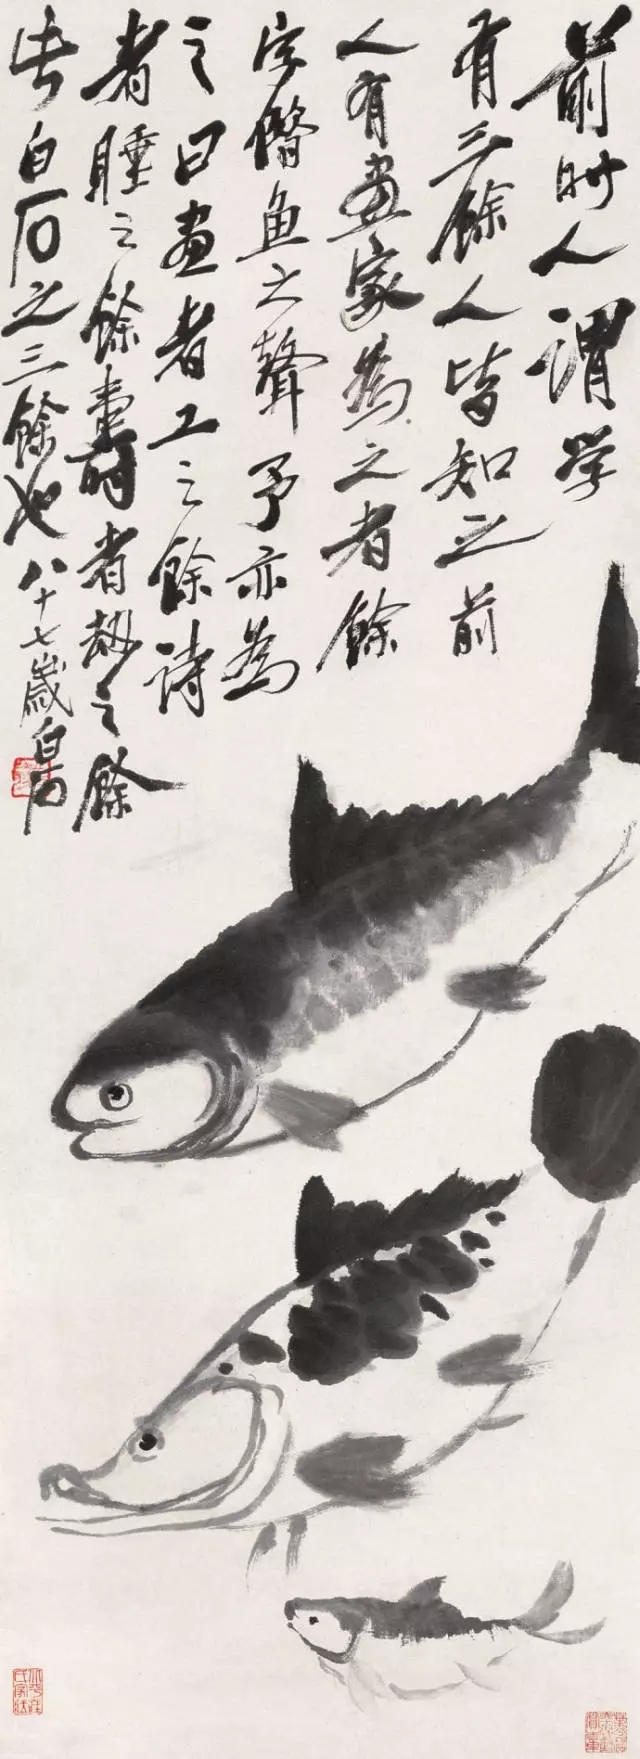 前时人謂学
有三餘人皆知之前
人有畫家為之者餘
字借鱼之聲予亦為
之曰畫者工之餘詩
者睡之餘壽者劫之餘
此白石之三餘也八十七歲白石